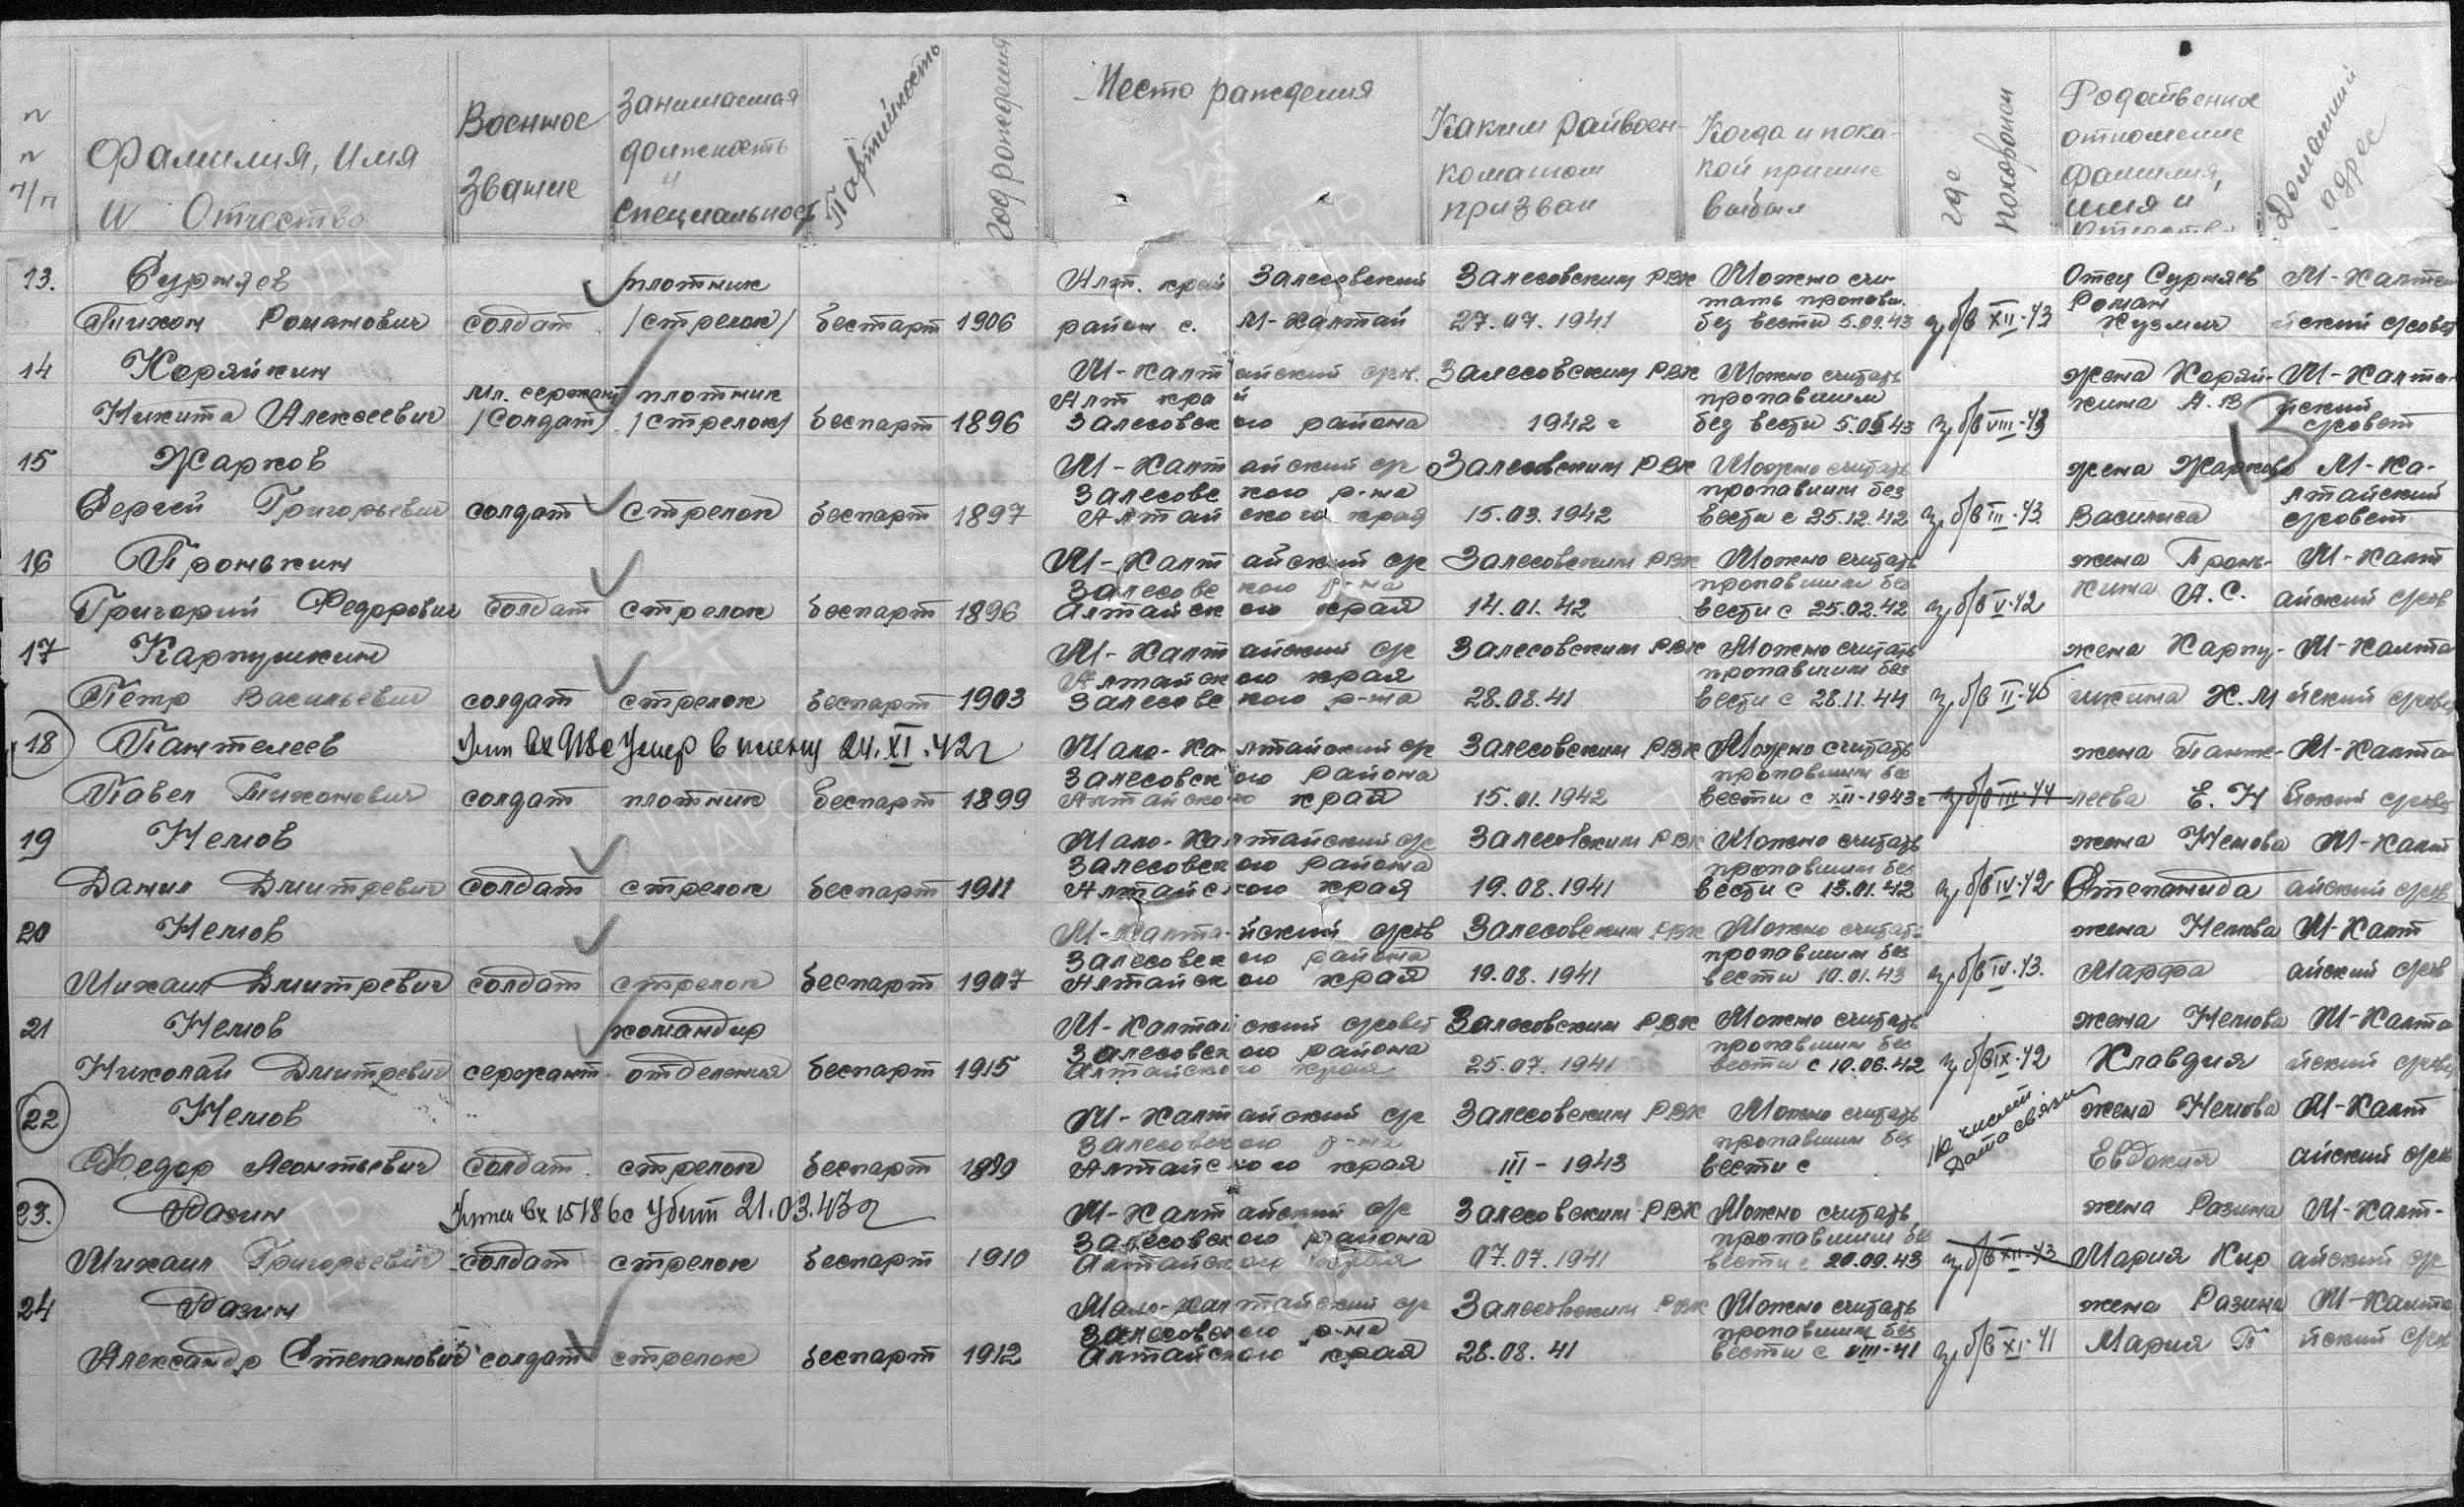 N
N
п/п
Фамилия, Имя
и Отчество
Военное
звание
Занимаемая
должность
и
специальность
Партийность
Год рождения
Место раждения
Каким райвоен-
коматом
призван
Когда и пока-
кой причине
выбыл
где
похоронен
Родственное
отношение
фамилия,
имя и
отчество
Домашний
адрес
13. Сурняев плотник Алт. край Залесовский Залесовским РВК Можно счи- Отец Сурняев М-Калтай
тать пропавш. Роман
Тихон Романович солдат /стрелок/ беспарт 1906 район с. М-Калтай 27.07.1941 без вести 5.09.43 з/б/в XII-43 Кузмич йский с/совет
14 Коряйкин М-Калтайский с/с. Залесовским РВК Можно считать жена Коряй- М-Калта-
мл. сержант плотник Алт край пропавшим кина А.В йский
Никита Алексеевич /Солдат/ /стрелок/ беспарт 1896 Залесовского района 1942 г без вести 5.05.43 з/б/в VIII-43 с/совет
13
15 Жарков М-Калтайский с/с Залесовским РВК Можно считать жена Жаркова М-Ка-
Залесовского р-на пропавшим без лтайский
Сергей Григорьевич солдат стрелок беспарт 1897 Алтайского края 15.03.1942 вести с 25.12.42 з/б/в III-43. Василиса с/совет
16 Пронькин М-Калтайский с/с Залесовским РВК Можно считать жена Пронь- М-Калт
Залесовского р-на пропавшим без кина А.С.
Григорий Федорович солдат стрелок беспарт 1896 Алтайского края 14.01.42 вести с 25.02.42 з/б/в V-42 айский с/сов
17 Карпушкин М-Калтайский с/с Залесовским РВК Можно считать жена Карпу- М-Калта
Алтайского края пропавшим без
Пётр Васильевич солдат стрелок беспарт 1903 Залесовского р-на 28.08.41 вести с 28.11.44 з/б/в II-45 шкина К.М йский с/совет
18 Пантелеев Умер в плену 24.XI.42г Мало-Калтайский с/с Залесовским РВК Можно считать жена Панте- М-Калта
Залесовского района пропавшим без
Павел Тихонович солдат плотник беспарт 1899 Алтайского края 15.01.1942 вести с XII-1943г з/б/в III-44 леева Е.Н йский с/совет
19 Немов Мало-Калтайский с/с Залесовским РВК Можно считать жена Немова М-Калт
Залесовского района пропавшим без
Данил Дмитревич солдат стрелок беспарт 1911 Алтайского края 19.08.1941 вести с 13.01.42 з/б/в IV-42 Степанида айский с/сов
20 Немов М-Калтайский с/сов Залесовским РВК Можно считать жена Немова М-Калт
Залесовского района пропавшим без
Михаил Дмитревич солдат стрелок беспарт 1907 Алтайского края 19.08.1941 вести 10.01.43 з/б/в IV-43. Марфа айский с/сов
21 Немов командир М-Калтайский с/совет Залесовским РВК Можно считать жена Немова М-Калта
Залесовского района пропавшим без
Николай Дмитревич сержант отделения беспарт 1915 Алтайского края 25.07.1941 вести с 10.06.42 з/б/в IX-42 Клавдия йский с/совет
22 Немов М-Калтайский с/с Залесовским РВК Можно считать жена Немова М-Калт
Залесовского р-на пропавшим без Дата связи
Федор Леонтьевич солдат стрелок беспарт Алтайского края III-1943 вести с Евдокия айский с/сов
23. Разин Убит 21.03.43г М-Калтайский с/с Залесовским РВК Можно считать жена Разина М-Калт-
Залесовского района пропавшим без
Михаил Григорьевич солдат стрелок беспарт 1910 Алтайского края 07.07.1941 вести с 20.09.43 з/б/в XII-43 Мария Кир айский с/с
24 Разин Мало-Калтайский с/с Залесовским РВК Можно считать жена Разина М-Калта
Залесовского р-на пропавшим без
Александр Степанович солдат стрелок беспарт 1912 Алтайского края 28.08.41 вести с VIII-41 з/б/в XI-41 Мария П йский с/сов